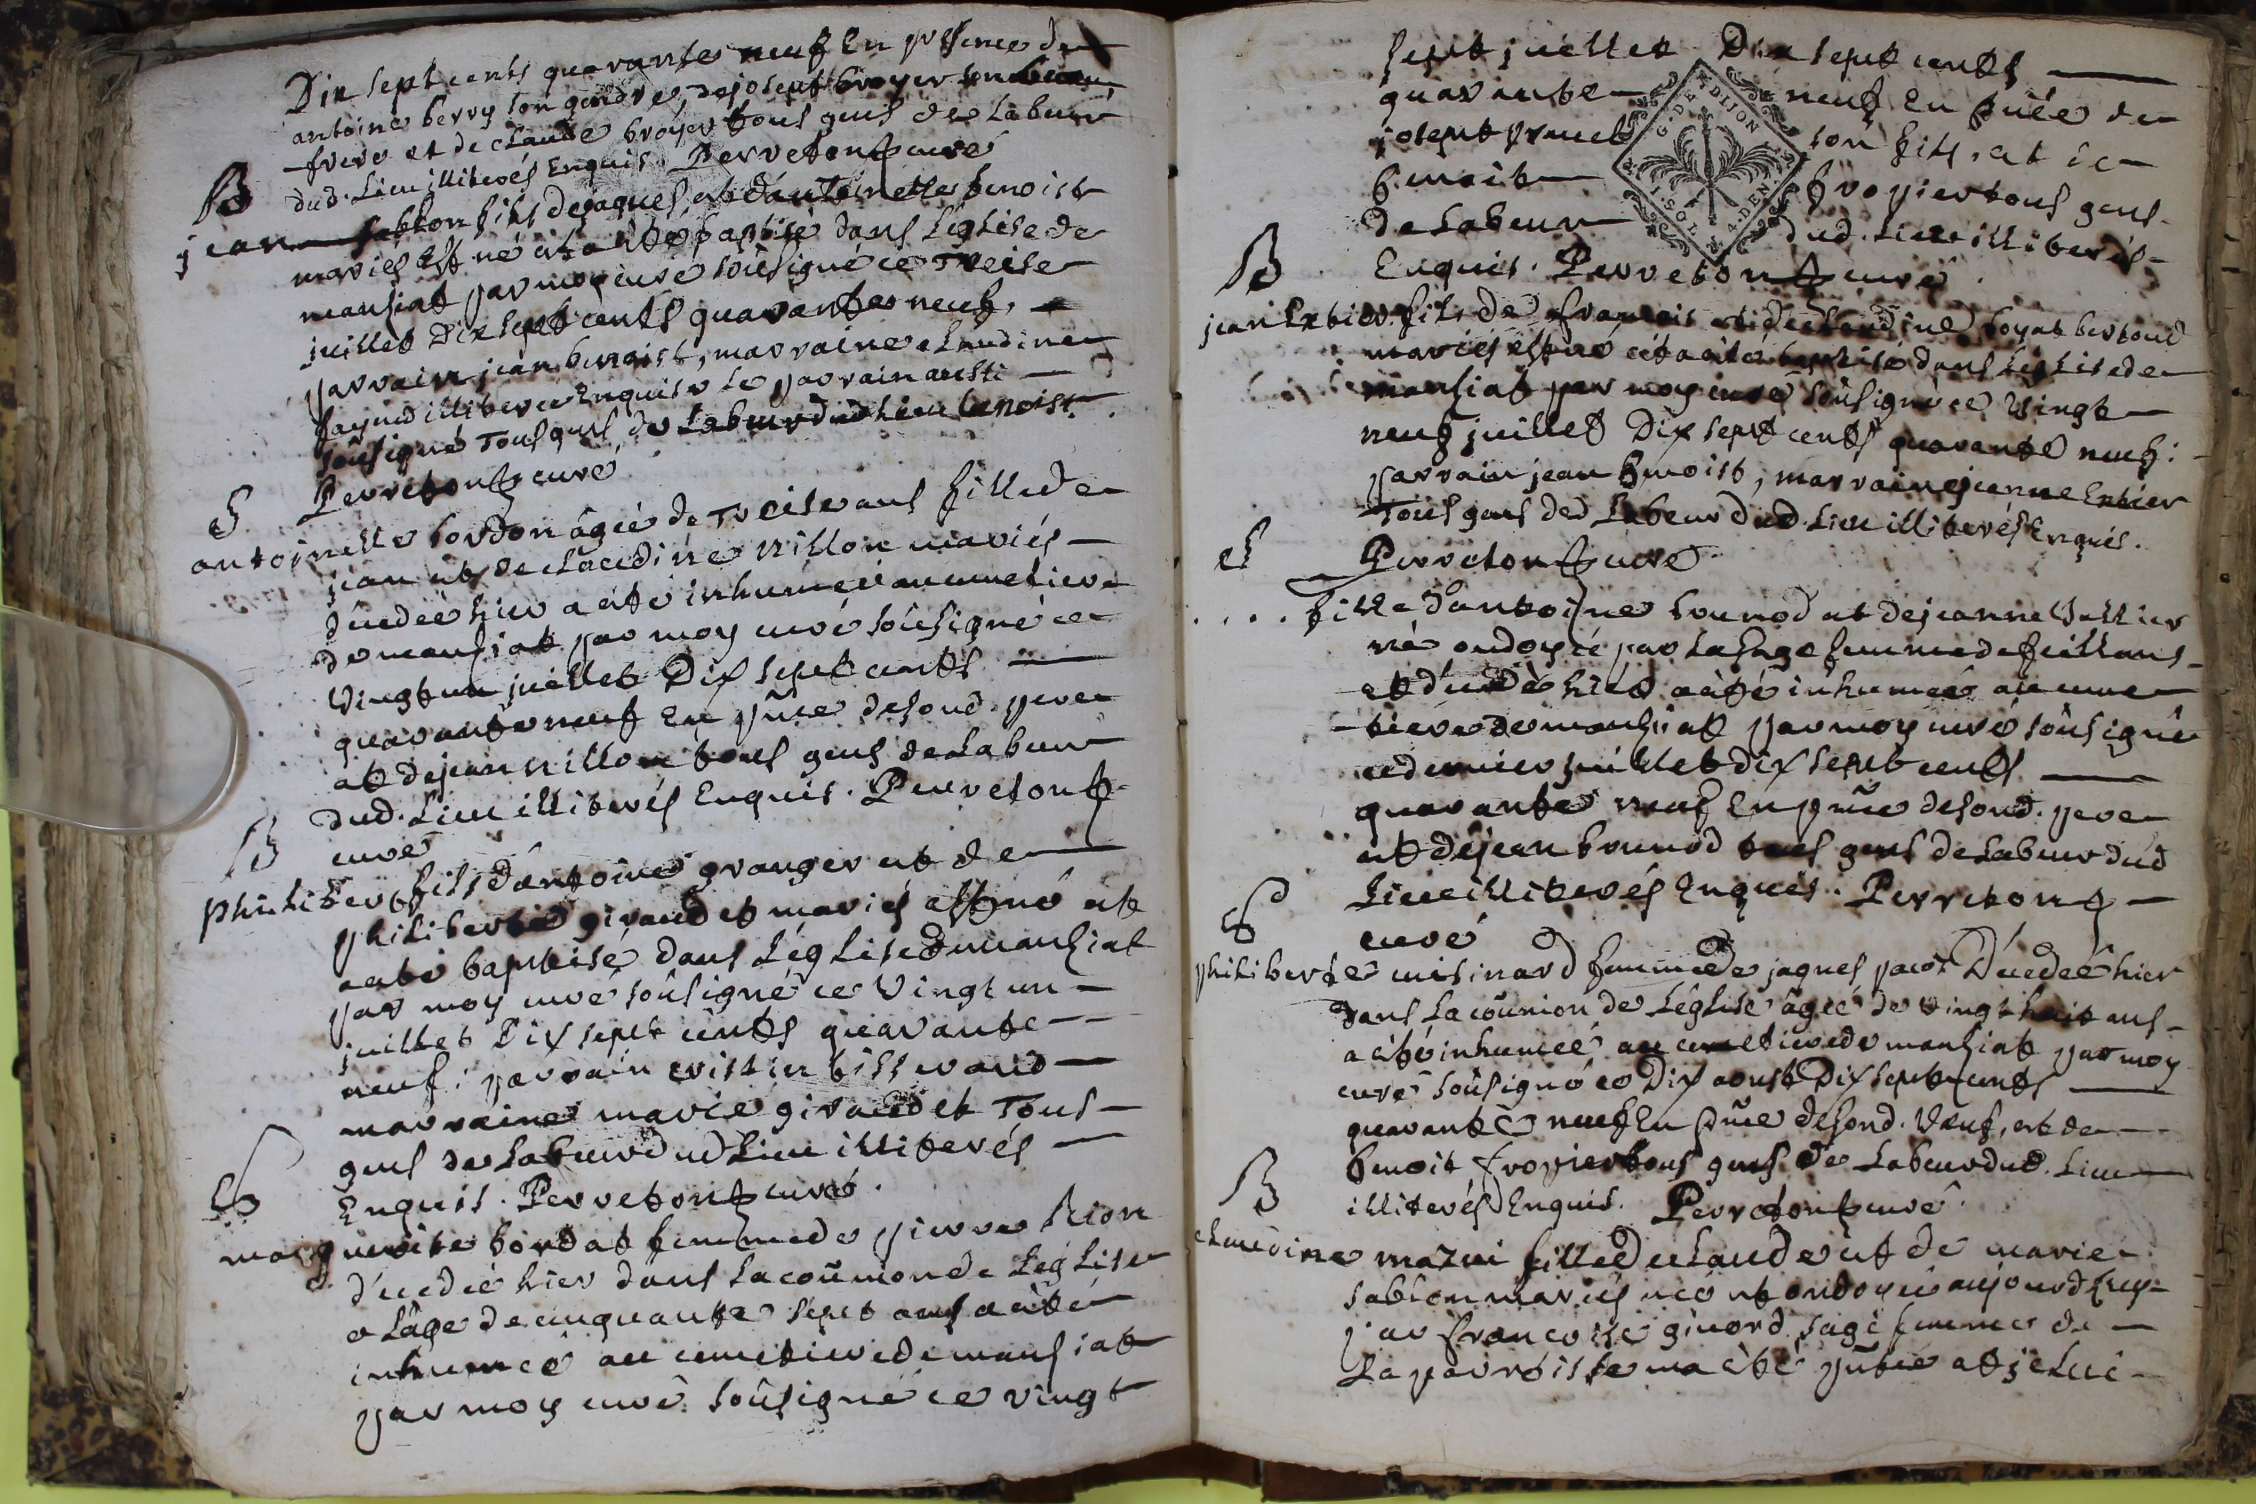 Dix sept cents quarante neuf En presence de
antoine berry son gendre, de joseph broyer son beau
frere et de claude broyer tous gens de Labeur
dud. Lieu illiterés Enquis. Perreton curé
B
jean sablon fils de jaques, et d'antoinette benoist
mariés est né et a eté baptisé dans L'eglise de
manziat par moy curé soûsigné ce treise
juillet Dix sept cents quarante neuf,
parrain jean benoist, marraine claudine
illiterée Enquise le parrain aussi
soûsigné Tous gens de Labeur dud Lieu benoist.
Perreton curé
S
antoinette bordon âgée de treise ans fille de
jean et de claudine nillon mariés
décedée hier a eté inhumée au cimetiere
de manziat par moy curé soûsigné ce
Vingt un juillet Dix sept cents
quarante neuf En pñce desond. pere
et de jean nillon tous gens de Labeur
dud. Lieu illiterés Enquis. Perreton
curé
B
philibert fils d'antoine granger et de
philiberte giraudet mariés est né et
a eté baptisé dans L'église de manziat
par moy curé soûsigné ce Vingt un
juillet Dix sept cents quarante
neuf. parrain
marraine marie giraudet Tous
gens de Labeur dud Lieu illiterés
Enquis. Perreton curé.
S
marguerite bordat femme de pierre
décedée hier dans la coũnion de L'église
a L'âge de cinquante sept ans a eté
inhumée au cimetiere de manziat
par moy curé soûsigné ce vingt
sept juillet Dix sept cents
quarante neuf En pñce de
joseph son fils, et de
benoit froyier tous gens
de Labeur dud. Lieu illiterés
Enquis. Perreton curé.
G. DE DIJON
I. SOL 4. DEN.
B
jean Extier fils de françois et de claudine boyat bertoud
mariés est né et a eté baptisé dans L'église de
manziat par moy curé soûsigné ce Vingt
neuf juillet Dix sept cents quarante neuf:
parrain jean benoist, marraine jeanne Extier
Tous gens de Labeur dud. Lieu illiterés Enquis.
Perreton curé.
S
.... fille d'antoine brunod et de jeanne
né ondoyée par La sage femme de feillens
et décedé hier a eté inhumée au cime
tiere de manziat par moy curé soûsigné
ce dernier juillet dix sept cents
quarante neuf En pñce desond. pere
et de jean brunod tous gens de Labeur dud
Lieu illiterés Enquis. Perreton
curé
S
philiberte misinard femme de jaques pacot Décedée hier
dans La coũnion de L'église âgée de vingt huit ans
a eté inhumée au cimetiere de manziat par moy
curé soûsigné ce Dix aoust Dix sept cents
quarante neuf En pñce desond. Veuf, et de
benoit froyier tous gens de Labeur dud. Lieu
illiterés Enquis. Perreton curé.
B
claudine fille de claude et de marie
sablon mariés née et ondoyée aujourd'huy
par françoise sage femme de
La parroisse m'a eté pñtée et je Lui